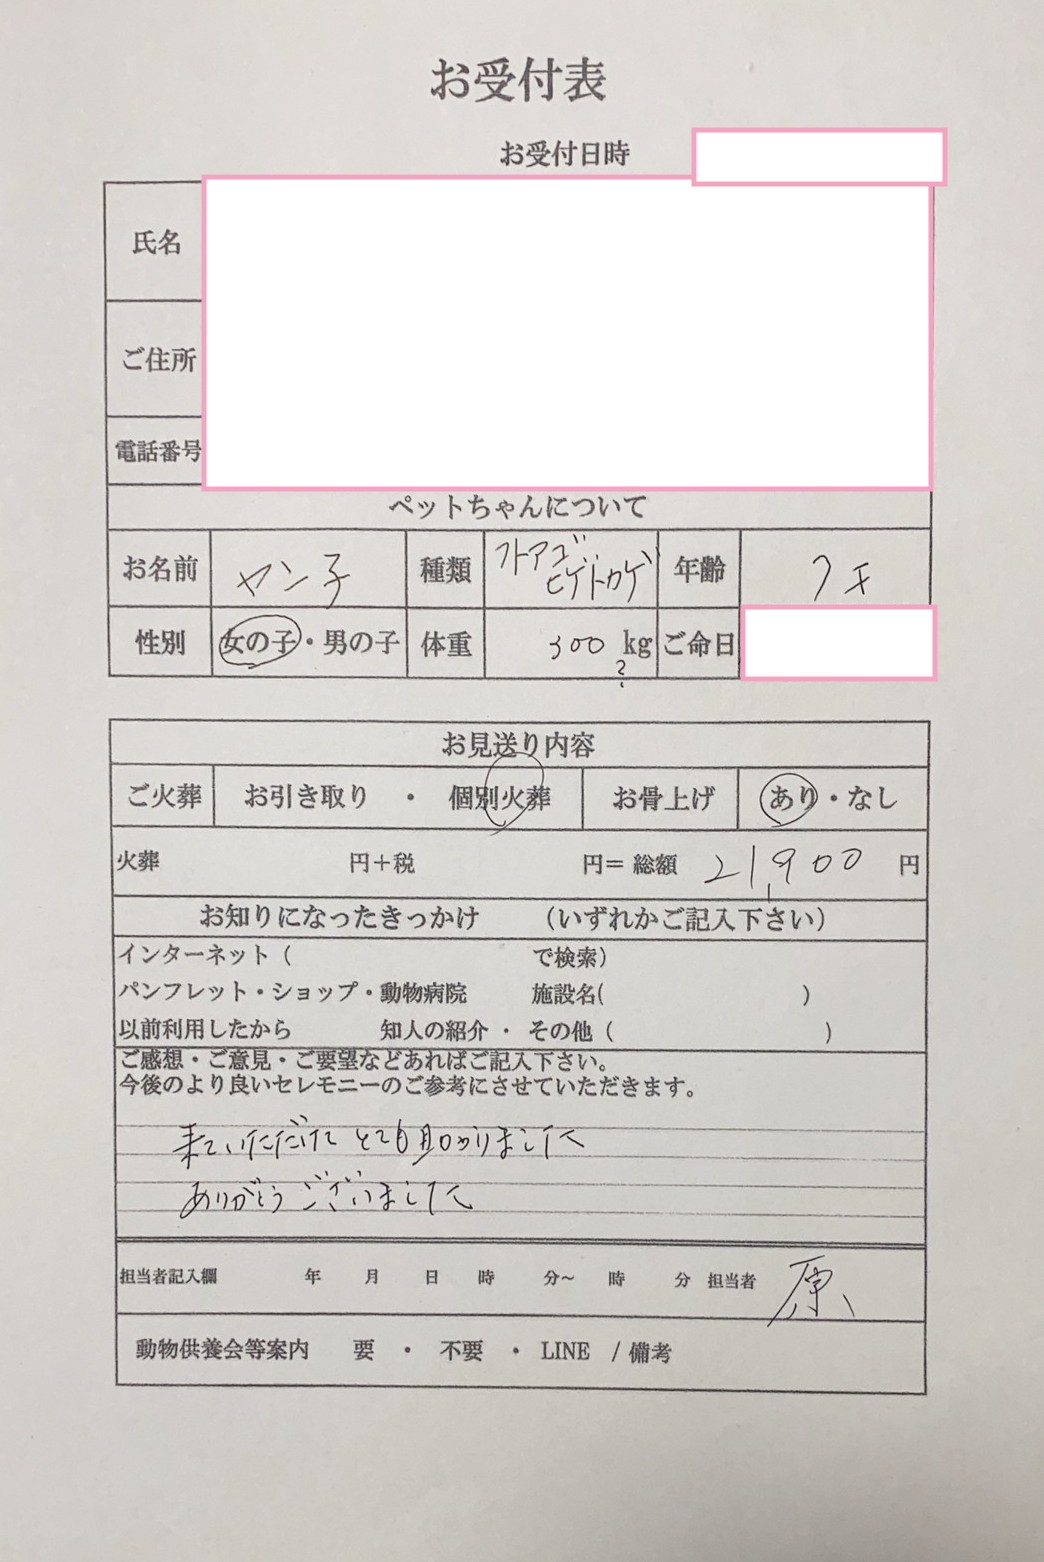 お受付表
お受付日時
氏名
ご住所
電話番号
ペットちゃんについて
お名前 ヤン子 種類 フトアゴヒゲトカゲ 年齢 7才
性別 女の子・男の子 体重 300 kg ? ご命日
お見送り内容
ご火葬 お引き取り ・ 個別火葬 お骨上げ あり・なし
火葬 円+税 円= 総額 21,900 円
お知りになったきっかけ (いずれかご記入下さい)
インターネット( で検索)
パンフレット・ショップ・動物病院 施設名( )
以前利用したから 知人の紹介 ・ その他( )
ご感想・ご意見・ご要望などあればご記入下さい。
今後のより良いセレモニーのご参考にさせていただきます。
来ていただけて とても助かりました
ありがとう ございました
担当者記入欄 年 月 日 時 分~ 時 分 担当者 原
動物供養会等案内 要 ・ 不要 ・ LINE / 備考